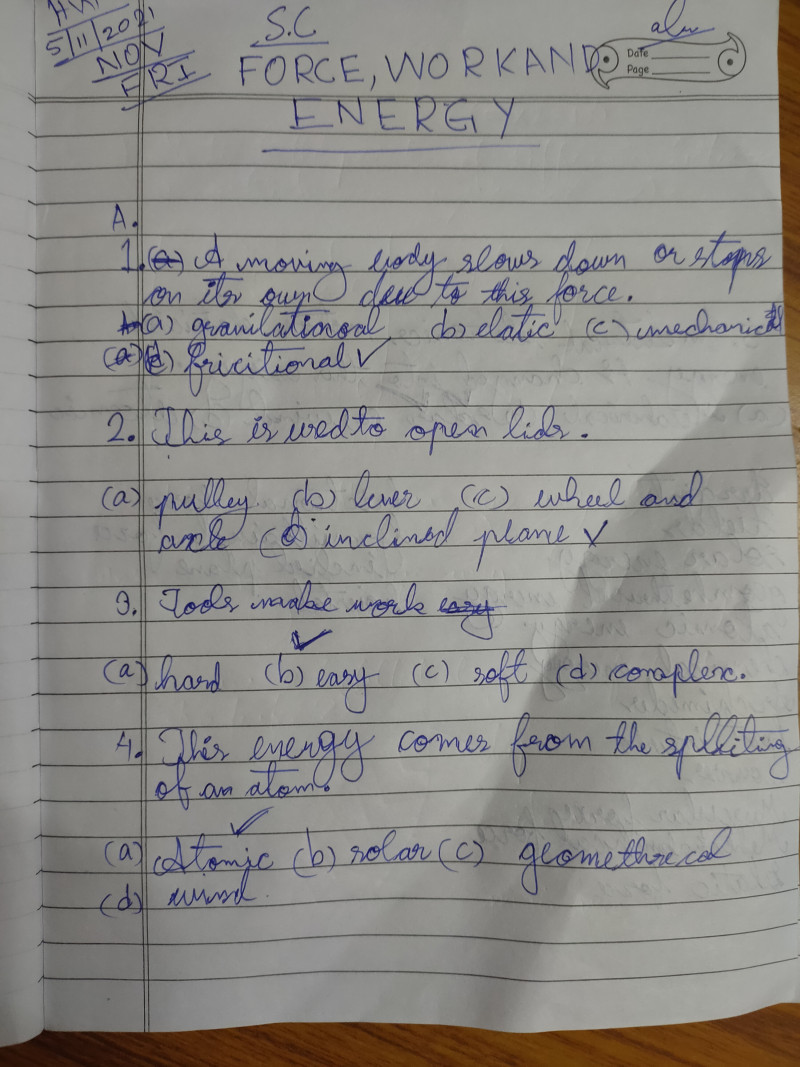 5/11/2021
NOV
FRI
S.C
FORCE, WORK AND
Date
Page
ENERGY
A.
1. (a) A moving body slows down or stops
on its own due to this force.
(a) gravilational (b) elatic (c) mechanical
(d) fricitional ✓
2. This is used to open lids.
(a) pulley (b) lever (c) wheel and
axle (d) inclined plane ✓
3. Tools make work easy
(a) hard (b) easy (c) soft (d) complex.
4. This energy comes from the spliting
of an atom.
(a) Atomic (b) solar (c) geomethrecal
(d) wind